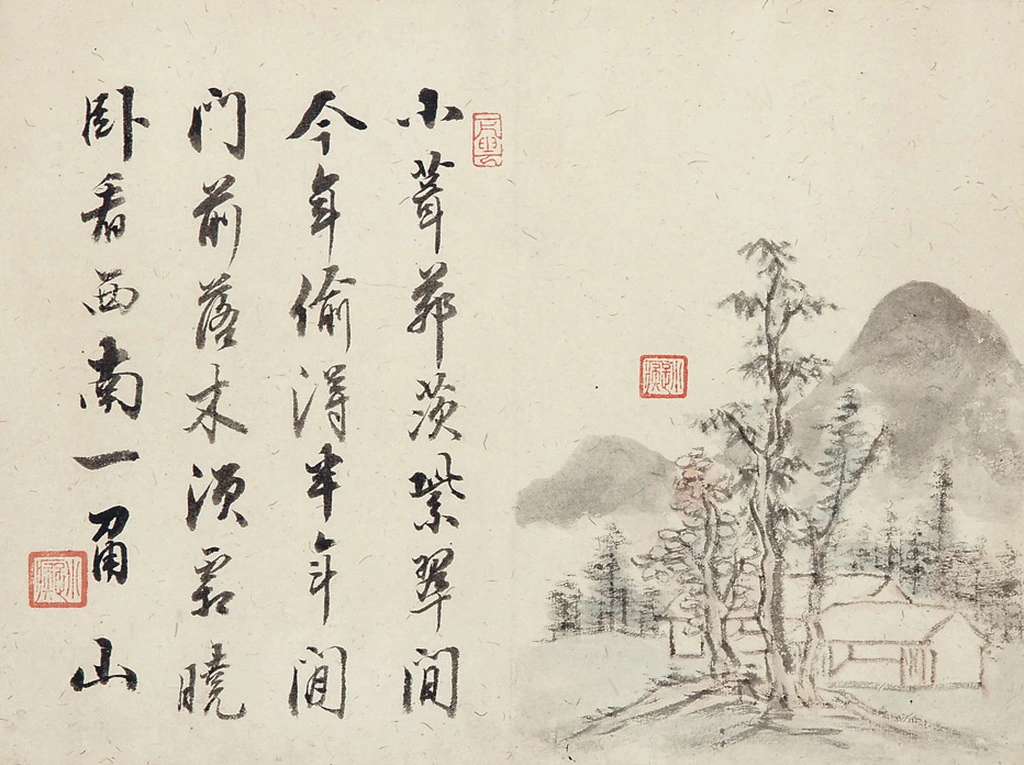 小葺茆茨紫翠間
今年偷得半年閒
門前落木須霜曉
臥看西南一角山